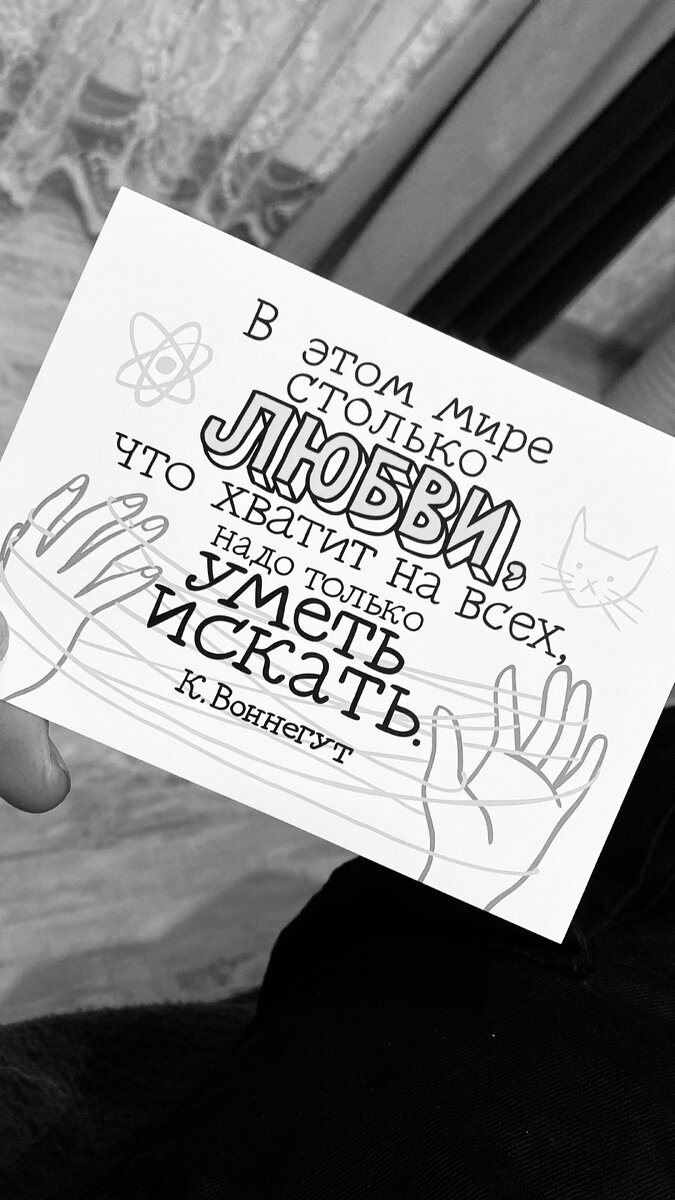 В этом мире
столько
ЛЮБВИ,
что хватит на всех,
надо только
уметь
искать.
К. Воннегут